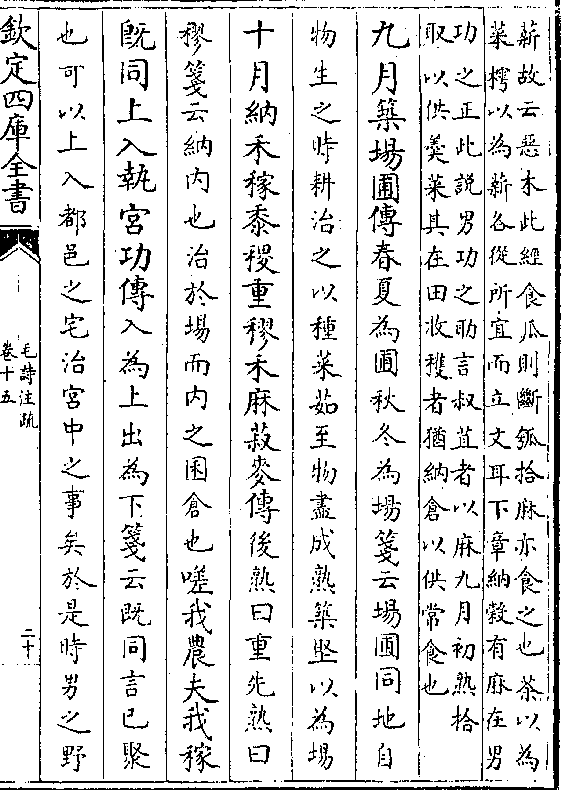 薪故云惡木此經食瓜則斷瓠拾麻亦食之也荼以為
菜樗以為薪各從所宜而立文耳下章納穀有麻在男
功之正此説男功之助言叔苴者以麻九月初熟拾
取以供羹菜其在田收穫者猶納倉以供常食也
九月築場圃傳春夏為圃秋冬為場箋云場圃同地自
物生之時耕治之以種菜茹至物盡成熟築堅以為場
十月納禾稼黍稷重穋禾麻菽麥傳後熟曰重先熟曰
穋箋云納内也治於場而内之囷倉也嗟我農夫我稼
既同上入執宮功傳入為上出為下箋云既同言已聚
也可以上入都邑之宅治宮中之事矣於是時男之野
欽定四庫全書
毛詩注疏
卷十五
二十